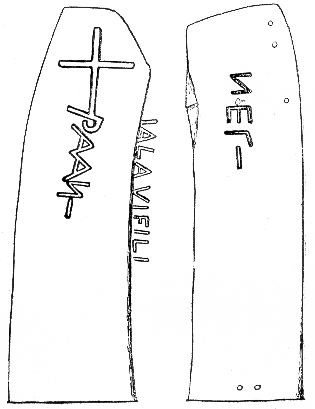 PAAN-
IALAVIFILI
NEΓ-